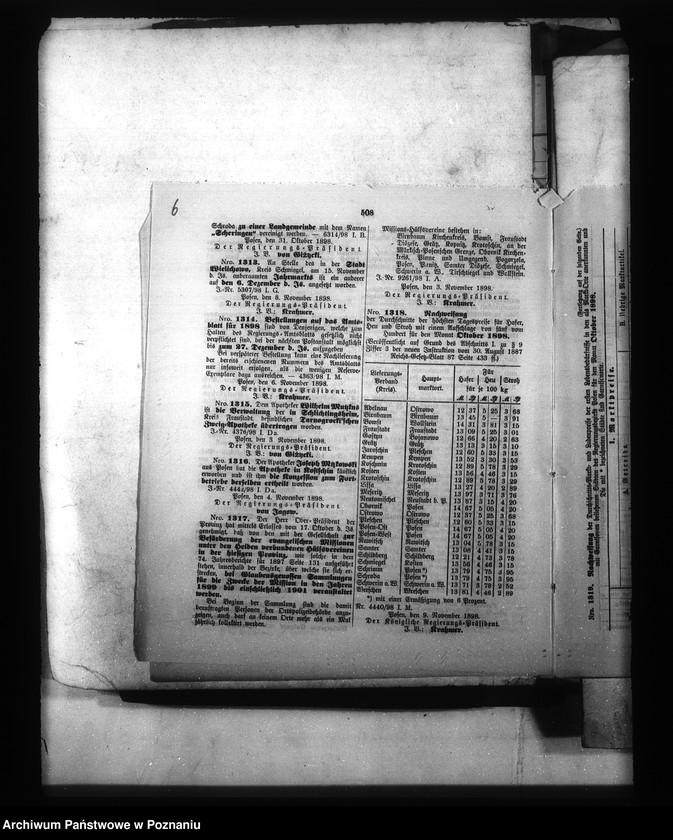 6
508
Schroda zu einer Landgemeinde mit dem Namen
„Scheringen" vereinigt werden. — 6314/98 I. B.
Posen, den 31. Oktober 1898.
Der Regierungs-Präsident
J. V. von Gizycki.
Nro. 1313. An Stelle des in der Stadt
Wielichowo, Kreis Schmiegel, am 15. November
d. Js. anberaumten Jahrmarkts ist ein anderer
auf den 6. Dezember d. Js. angesetzt worden.
J.-Nr. 5307/98 I. G.
Posen, den 8. November 1898.
Der Regierungs-Präsident
J. V.: Krahmer.
Nro. 1314. Bestellungen auf das Amts-
blatt für 1898 sind von Denjenigen, welche zum
Halten des Regierungs-Amtsblatts gesetzlich nicht
verpflichtet sind, bei der nächsten Postanstalt möglichst
bis zum 27. Dezember d. Js. aufzugeben
Bei verspäteter Bestellung kann eine Nachlieferung
der bereits erschienenen Nummern des Amtsblatts
nur insoweit erfolgen, als die wenigen Reserve-
Exemplare dazu ausreichen. — 4363/98 I. M.
Posen, den 6. November 1898.
Der Regierungs-Präsident
J. V.: Krahmer.
Nro. 1315. Dem Apotheker Wilhelm Mutzkus
ist die Verwaltung der in Schlichtingsheim,
Kreis Fraustadt, befindlichen Tarnogrocki'schen
Zweig-Apotheke übertragen worden.
J.-Nr. 4376/98 I. Da.
Posen, den 3 November 1898.
Der Regierungs-Präsident
J. V.: von Gizycki.
Nro. 1316. Der Apotheker Joseph Mizkowski
aus Posen hat die Apotheke in Kostschin käuflich
erworben und ist ihm die Konzession zum Fort-
betriebe derselben ertheilt worden.
J.-Nr. 4444/98 I. Da.
Posen, den 4. November 1898.
Der Regierungs-Präsident
von Jagow.
Nro. 1317. Der Herr Ober-Präsident der
Provinz hat mittels Erlasses vom 17. Oktober d. Js.
genehmigt, daß von den mit der Gesellschaft zur
Beförderung der evangelischen Missionen
unter den Heiden verbundenen Hülfsvereinen
in der hiesigen Provinz, wie solche in dem
74. Jahresbericht für 1897 Seite 131 aufgeführt
stehen, innerhalb der Bezirke, über welche sie sich er-
strecken, bei Glaubensgenossen Sammlungen
für die Zwecke der Mission in den Jahren
1899 bis einschließlich 1901 veranstaltet
werden.
Bei Beginn der Sammlung sind die damit
beauftragten Personen der Ortspolizeibehörde anzu-
zeigen, auch darf an keinem Orte mehr als ein Mal
jährlich kollektirt werden.
Missions-Hülfsvereine bestehen in:
Birnbaum Kirchenkreis, Bomst, Fraustadt
Diözese, Grätz, Kopnitz, Krotoschin, an der
Märkisch-Posenschen Grenze, Obornik Kirchen-
kreis, Pinne und Umgegend, Rogasen,
Posen, Punitz, Samter Diözese, Schmiegel,
Schwerin a. W., Tirschtiegel und Wollstein.
J.-Nr. 9261/98 I. A.
Posen, den 3. November 1898.
Der Regierungs-Präsident.
J. V.: Krahmer.
Nro. 1318. Nachweisung
der Durchschnitte der höchsten Tagespreise für Hafer,
Heu und Stroh mit einem Aufschlage von fünf vom
Hundert für den Monat Oktober 1898.
(Veröffentlicht auf Grund des Abschnitts I. zu § 9
Ziffer 3 der neuen Instruktion vom 30. August 1887
Reichs-Gesetz-Blatt 37 Seite 433 ff.)
Lieferungs-Verband (Kreis). Haupt-marktort. Für Hafer Heu Stroh für je 100 kg
Adelnau Ostrowo 12 37 5 25 3 68
Birnbaum Birnbaum 13 45 5 — 3 91
Bomst Wollstein 14 31 3 81 3 15
Fraustadt Fraustadt 13 09 5 25 3 01
Gostyn Bojanowo 12 66 4 20 2 63
Grätz Grätz 13 13 3 15 3 10
Jarotschin Pleschen 12 60 5 33 3 15
Kempen Kempen 13 52 3 30 3 53
Koschmin Krotoschin 12 89 5 78 3 29
Kosten Kosten 13 56 4 46 3 15
Krotoschin Krotoschin 12 89 5 78 3 29
Lissa Lissa 12 97 4 20 2 89
Meseritz Meseritz 13 97 3 71 3 74
Neutomischel Neustadt b. P. 13 87 3 15 4 20
Obornik Posen 14 67 5 05 4 20
Ostrowo Ostrowo 12 37 5 25 3 68
Pleschen Pleschen 12 60 5 33 3 15
Posen-Ost Posen 14 67 5 05 4 20
Posen-West Posen 14 67 5 05 4 20
Rawitsch Rawitsch 13 04 5 04 3 15
Samter Samter 13 08 4 41 3 15
Schildberg Schildberg 12 21 4 73 3 78
Schmiegel Kosten 13 56 4 46 3 15
Schrimm Posen*) 13 79 4 75 3 95
Schroda Posen*) 13 79 4 75 3 95
Schwerin a. W. Schwerin a. W. 13 13 3 78 2 52
Wreschen Wreschen 13 81 4 46 2 89
*) mit einer Ermäßigung von 6 Prozent.
Nr. 4440/98 I. M.
Posen, den 9. November 1898.
Der Königliche Regierungs-Präsident.
J. V.: Krahmer.
Nro. 1319.
Oktober 1898.
I. Marktpreise.
A. Getreide.
B. Uebrige Marktartikel.
Archiwum Państwowe w Poznaniu